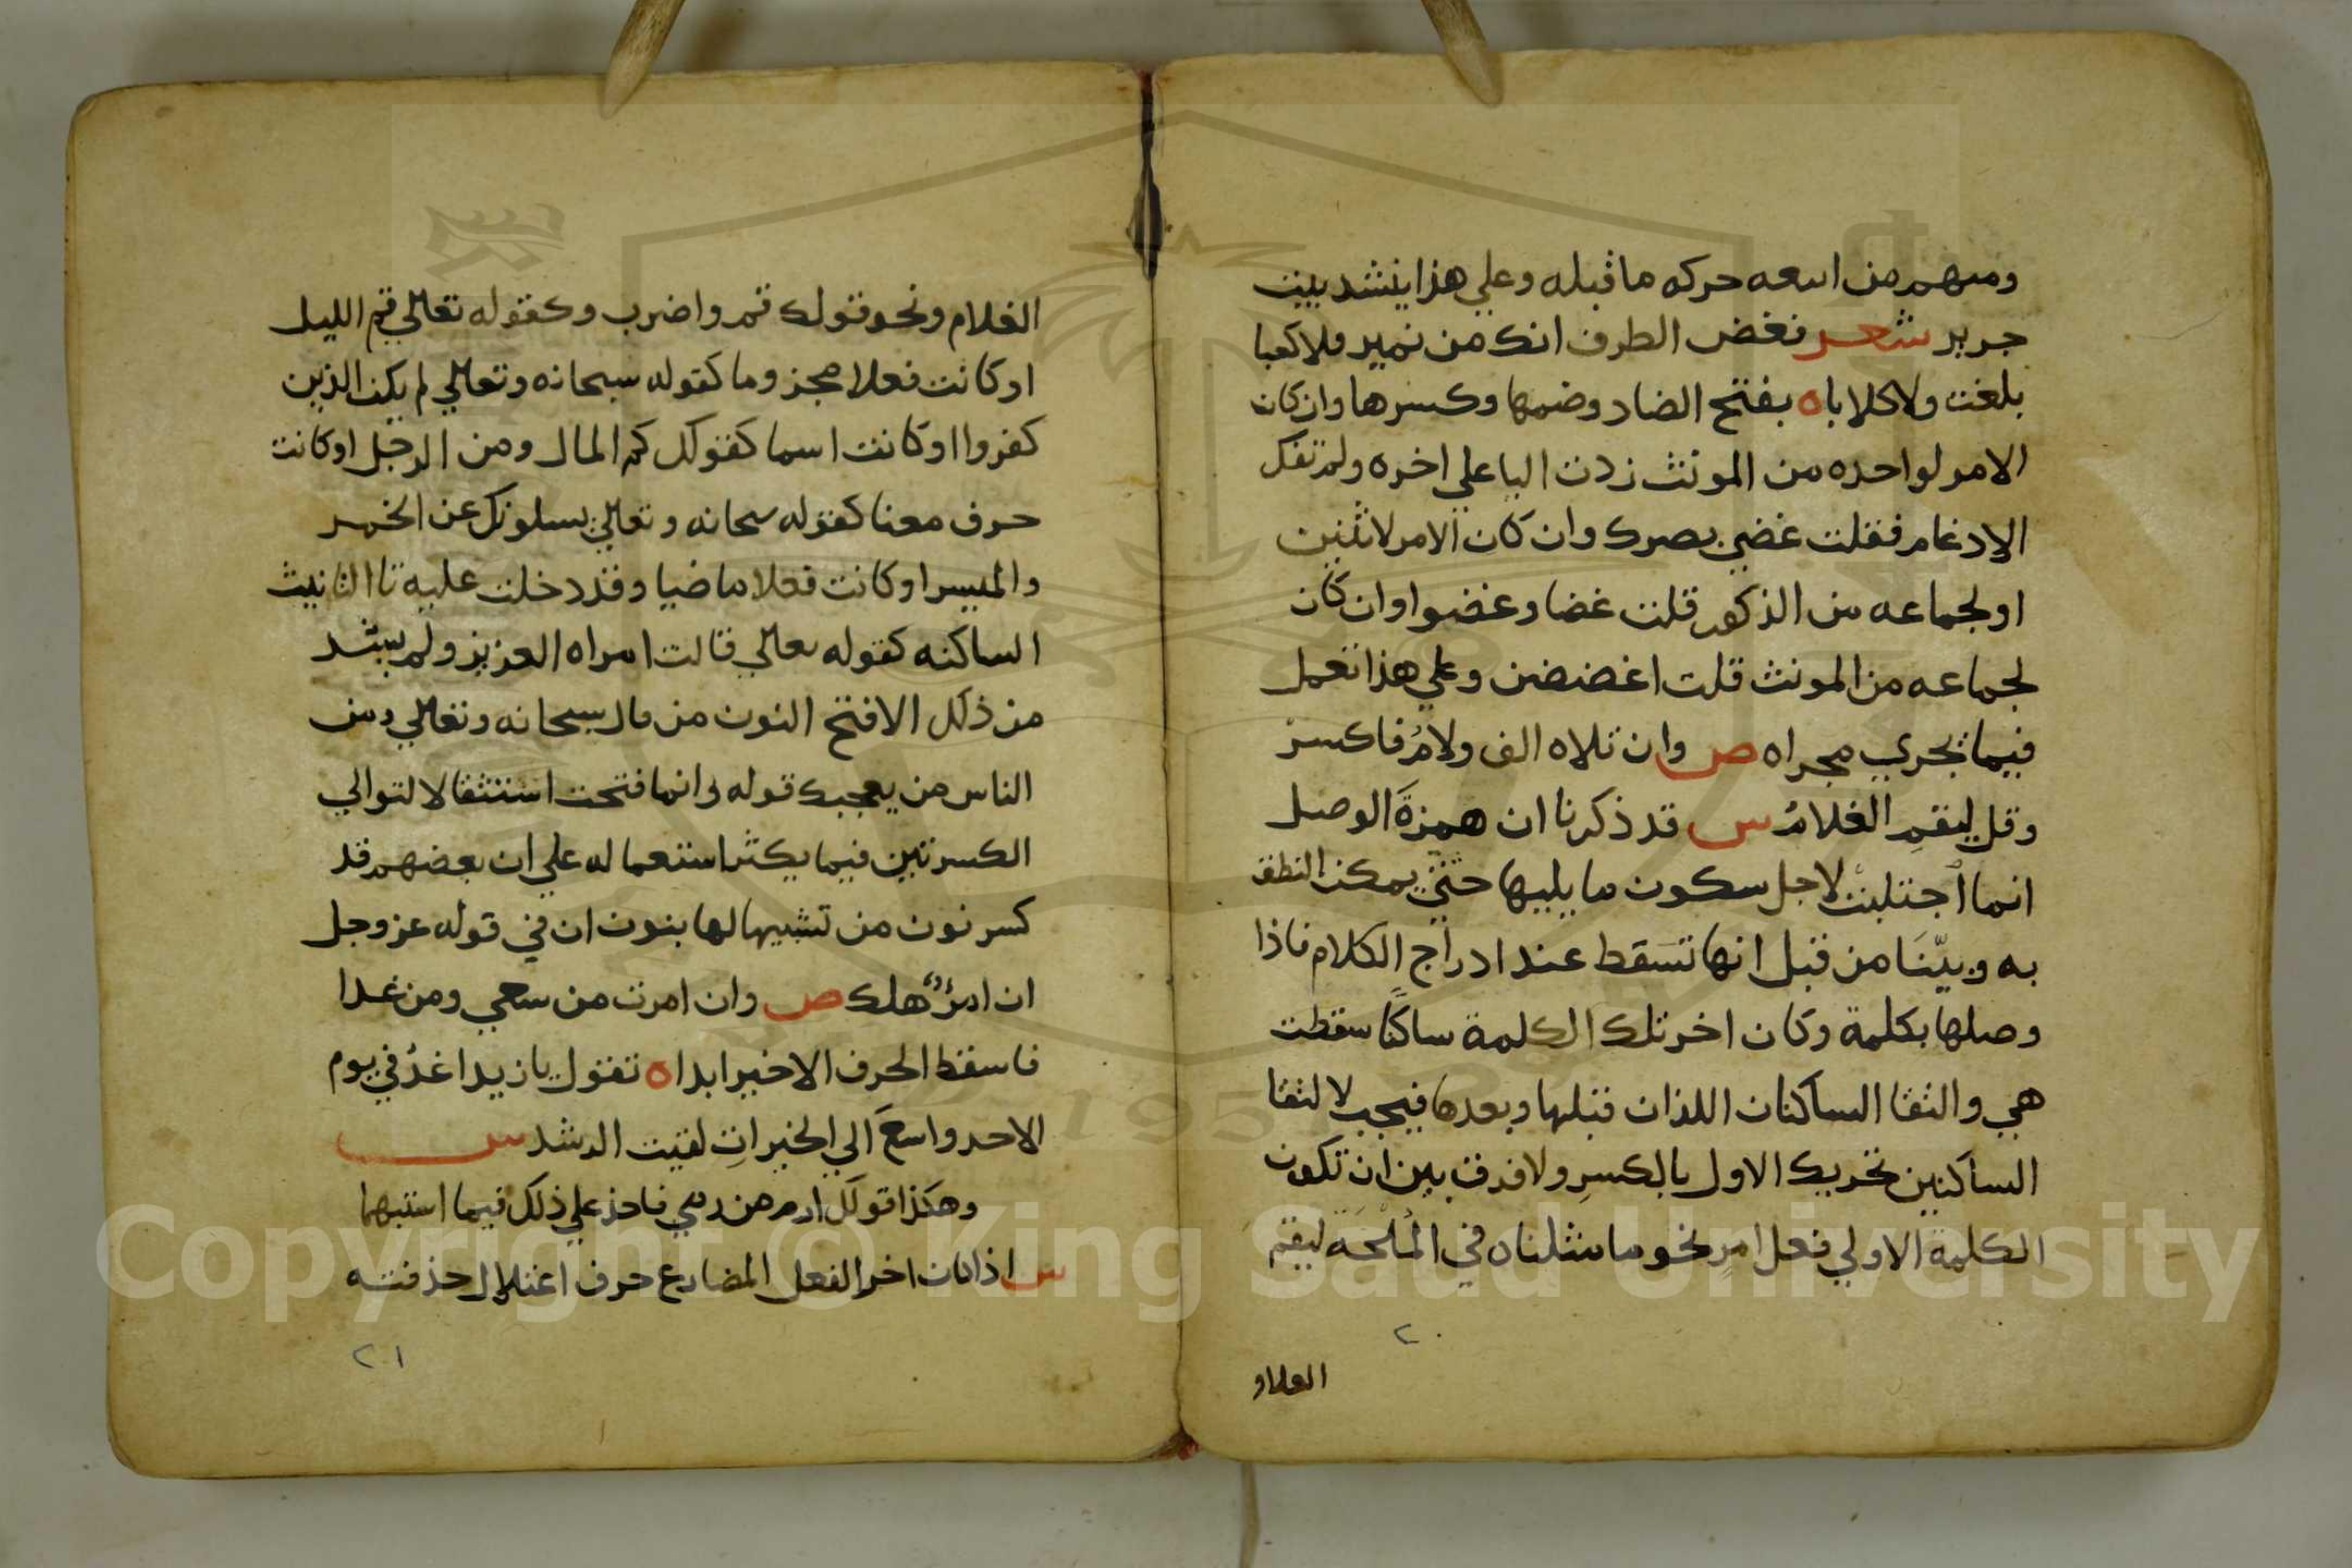 ومنهم من اتبعه حركه ما قبله وعلي هذا ينشد بيت
جرير شعر فغض الطرف انك من نمير فلا كعبا
بلغت ولا كلاباه بفتح الضاد وضمها وكسرها وان كان
الامر لواحده من المونث زدت اليا علي اخره ولم تفك
الادغام فقلت غضي بصرك وان كان الامر لاثنين
او لجماعه من الذكور قلت غضا وغضوا وان كان
لجماعه من المونث قلت اغضضن وعلي هذا تعمل
فيما يجري مجراه ص وان تلاه الف ولامُ فاكسر
وقل ليقمِ الغلامُ س قد ذكرنا ان همزةَ الوصل
انما اجتلبتْ لاجل سكون ما يليها حتي يمكن النطق
به وبيّنَا من قبل انها تسقط عند ادراج الكلام فاذا
وصلها بكلمة وكان اخر تلك الكلمة ساكنًا سقطت
هي والتقا الساكنان اللذان قبلها وبعدها فيجب لالتقا
الساكنين تحريك الاول بالكسرِ ولا فرق بين ان تكون
الكلمة الاولي فعل امرٍ نحو ما مثلناه في المُلْحَة ليقم
٢٠
الغلام
الغلام ونحو قولك قم واضرب وكقوله تعالي قم الليل
او كانت فعلا مجزوما كقوله سبحانه وتعالي لم يكن الذين
كفروا او كانت اسما كقولك كم المال ومن الرجل او كانت
حرف معنا كقوله سبحانه وتعالي يسلونك عن الخمر
والميسر او كانت فعلا ماضيا وقد دخلت عليه تا التانيث
الساكنه كقوله تعالي قالت امراه العزيز ولم يشذ
من ذلك الا فتح النون من قال سبحانه وتعالي ومن
الناس من يعجبك قوله وانما فتحت استثقالا لتوالي
الكسرتين فيما يكثر استعماله علي ان بعضهم قد
كسر نون من تشبيها لها بنون ان في قوله عز وجل
ان امرؤٌ هلك ص وان امرت من سعي ومن غدا
فاسقط الحرف الاخير ابداه تقول يا زيد اغدُ في يوم
الاحد واسعَ الي الخيراتِ لقيت الرشد س
وهكذا قولك ارم من رمي فاحذ علي ذلك فيما استبهما
س اذا كان اخر الفعل المضارع حرف اعتلال حذفته
٢١
Copyright © King Saud University
1957